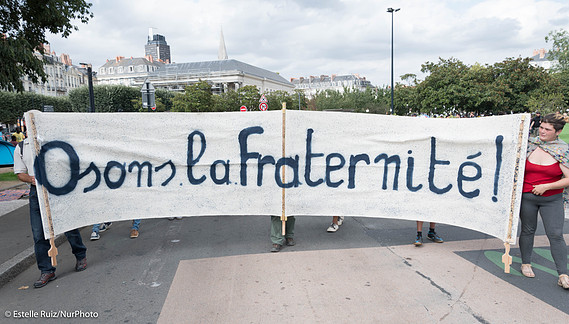 Osons la fraternité!
© Estelle Ruiz/NurPhoto